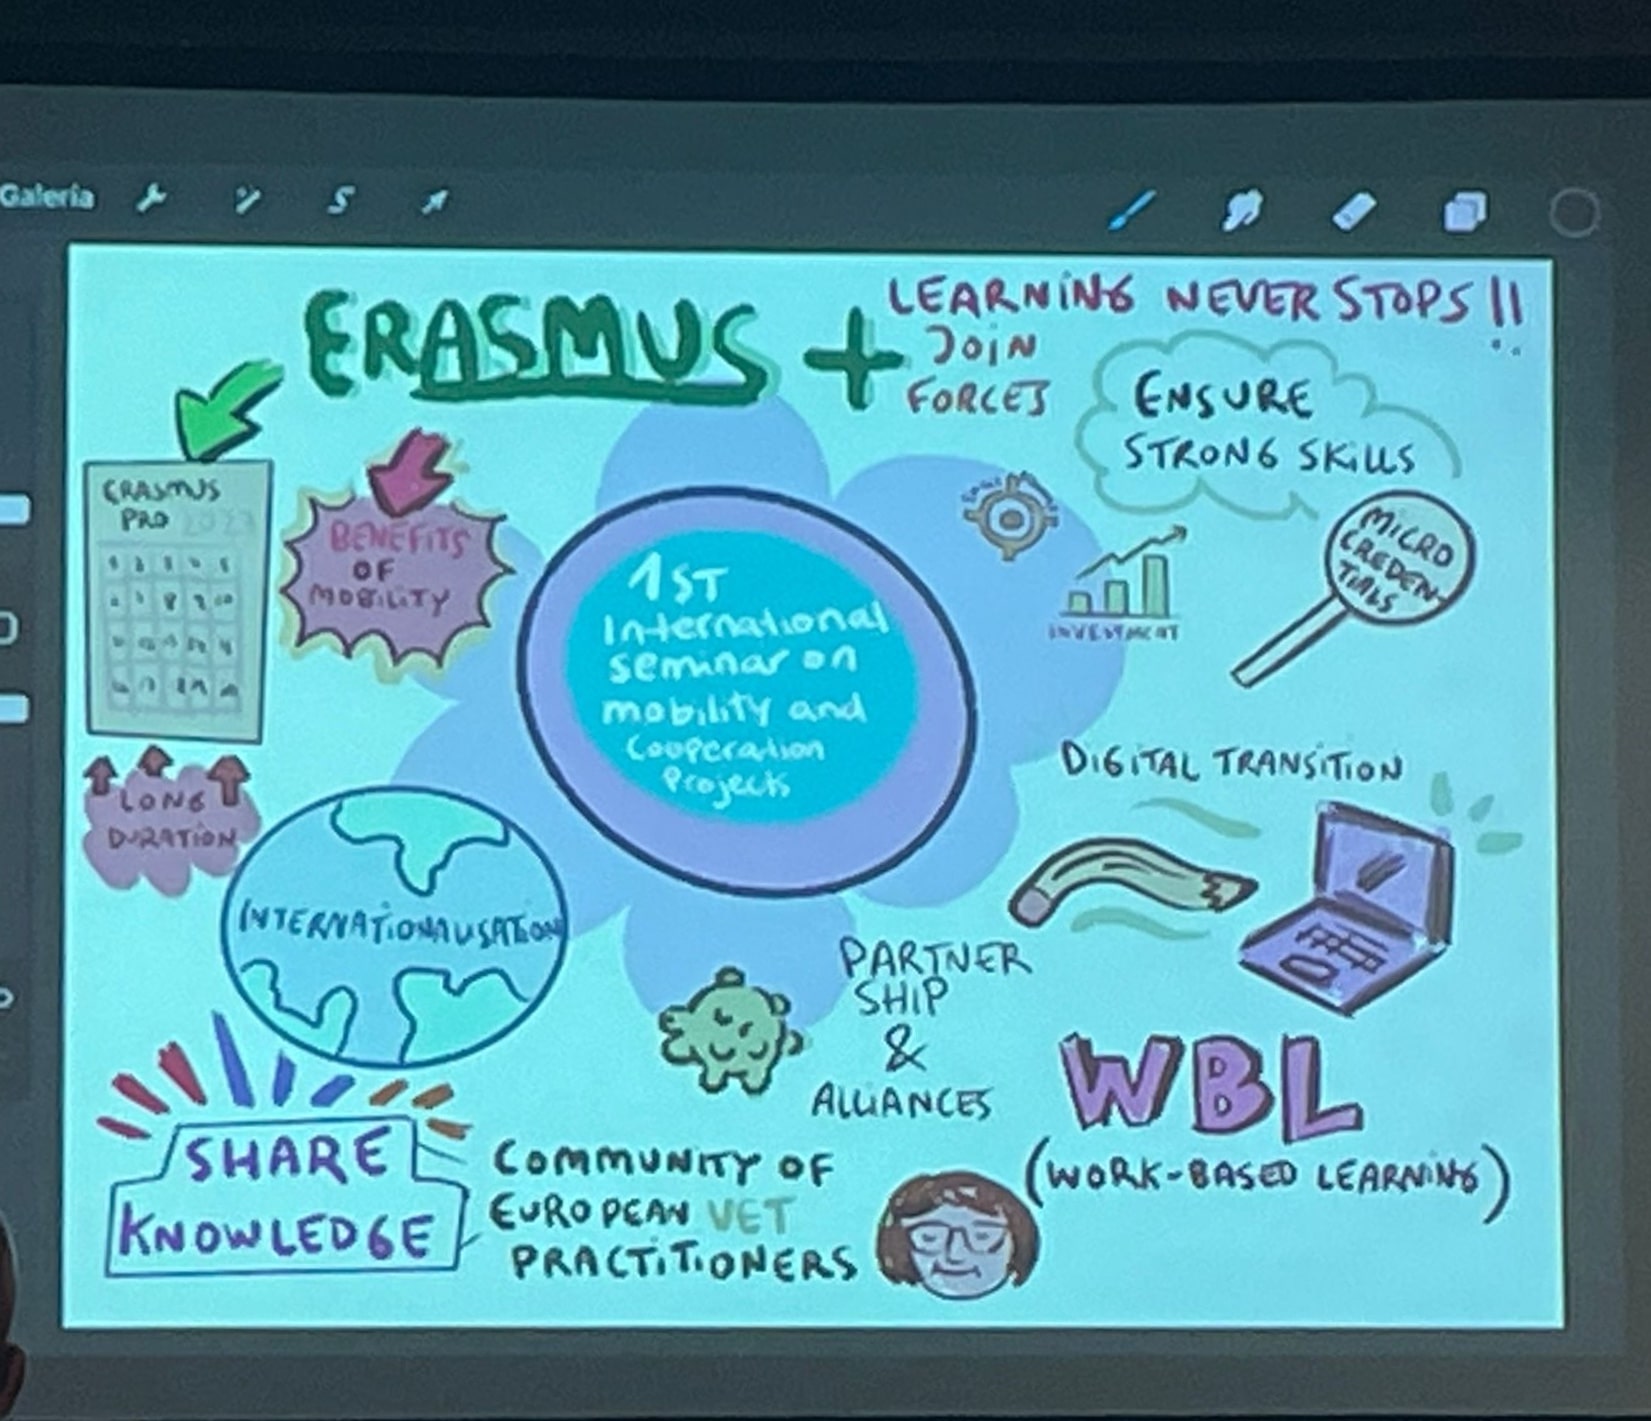 Galería
ERASMUS +
LEARNING NEVER STOPS!!
JOIN
FORCES
ENSURE
STRONG SKILLS
ERASMUS
PRO
BENEFITS
OF
MOBILITY
1ST
International
seminar on
mobility and
Cooperation
Projects
INVESTMENT
MICRO
CREDEN-
TIALS
LONG
DURATION
DIGITAL TRANSITION
INTERNATIONALISATION
PARTNER
SHIP
&
ALLIANCES
WBL
(WORK-BASED LEARNING)
SHARE
KNOWLEDGE
COMMUNITY OF
EUROPEAN VET
PRACTITIONERS